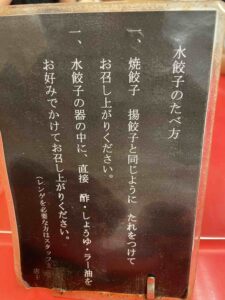 水餃子のたべ方
一、焼餃子 揚餃子と同じように たれをつけて
お召し上がりください。
一、水餃子の器の中に、直接 酢・しょうゆ・ラー油を
お好みでかけてお召し上がりください。
(レンゲを必要な方はスタッフ
店